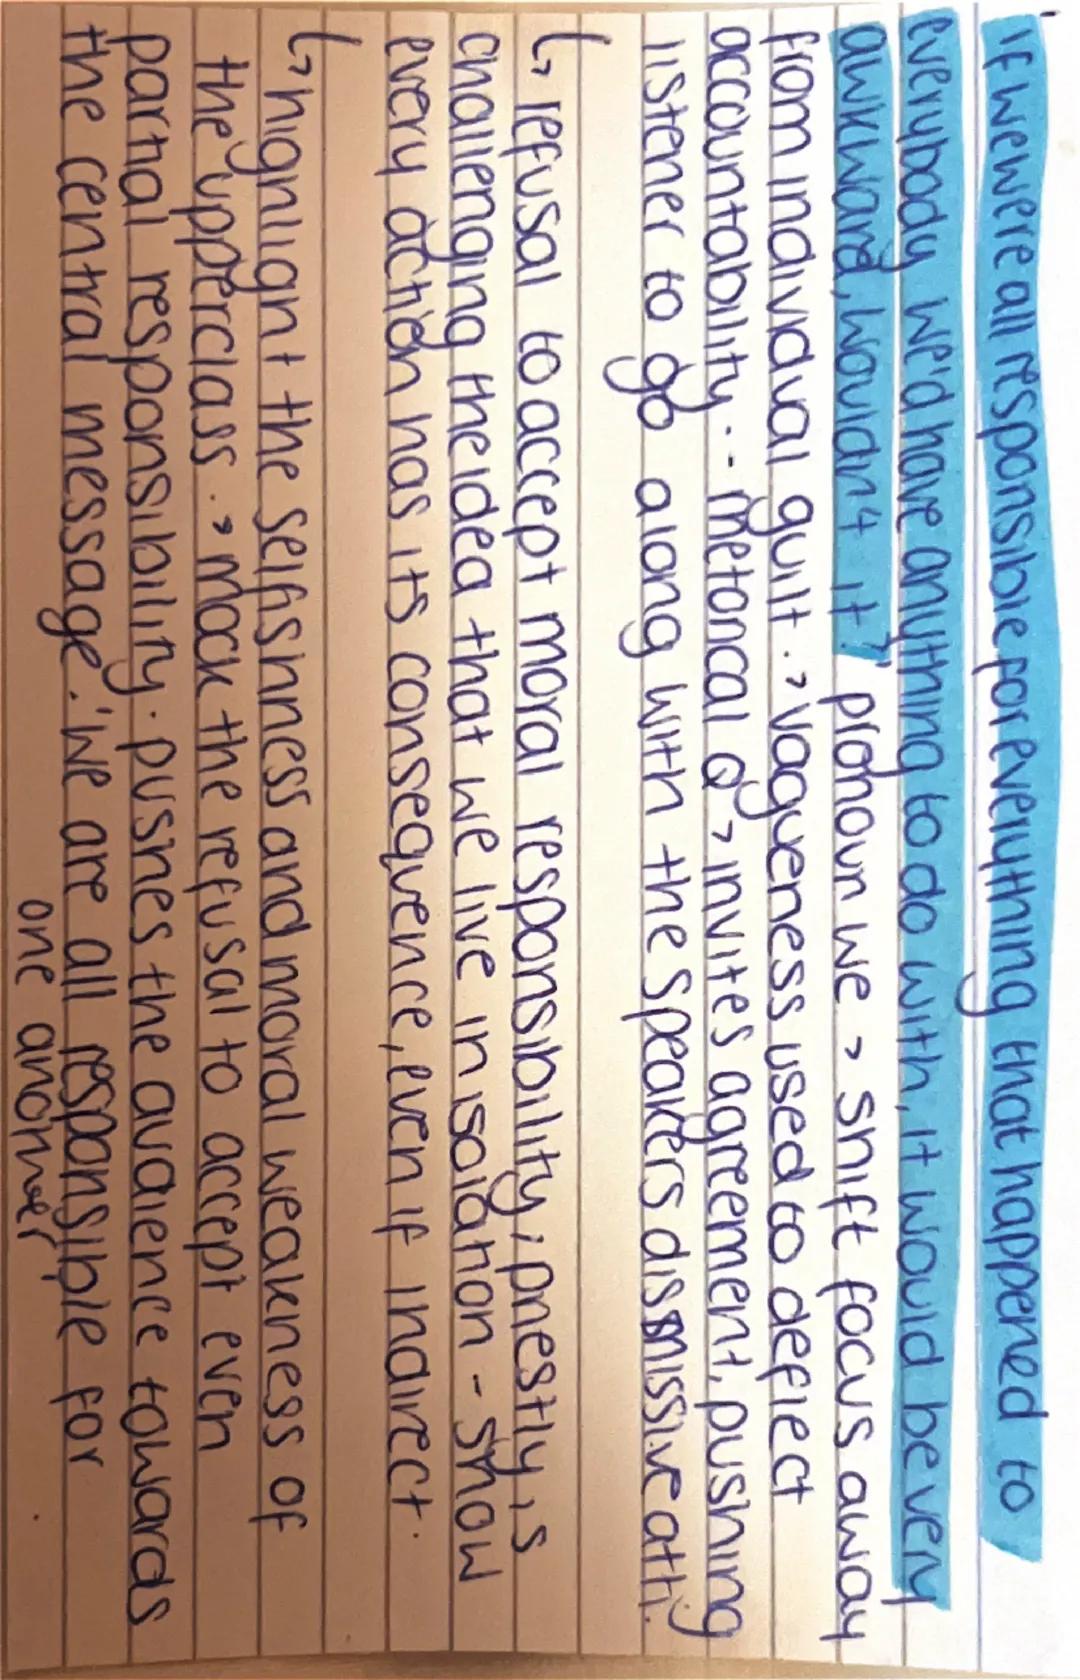 'If we were all responsible for everything that happened to
everybody we'd have anything to do with, it would be very
awkward, wouldn't it?' pronoun we > shift focus away
from individual guilt. > vagueness used to deflect
accountability. - rhetorical Q > invites agreement, pushing
listener to go along with the speakers dismissive atti.
↳ refusal to accept moral responsibility, priestly is
challenging the idea that we live in isolation - show
every action has its consequence, even if indirect.
↳ highlight the selfishness and moral weakness of
the upperclass. > mock the refusal to accept even
partial responsibility. pushes the audience towards
the central message. 'we are all responsible for
one another'